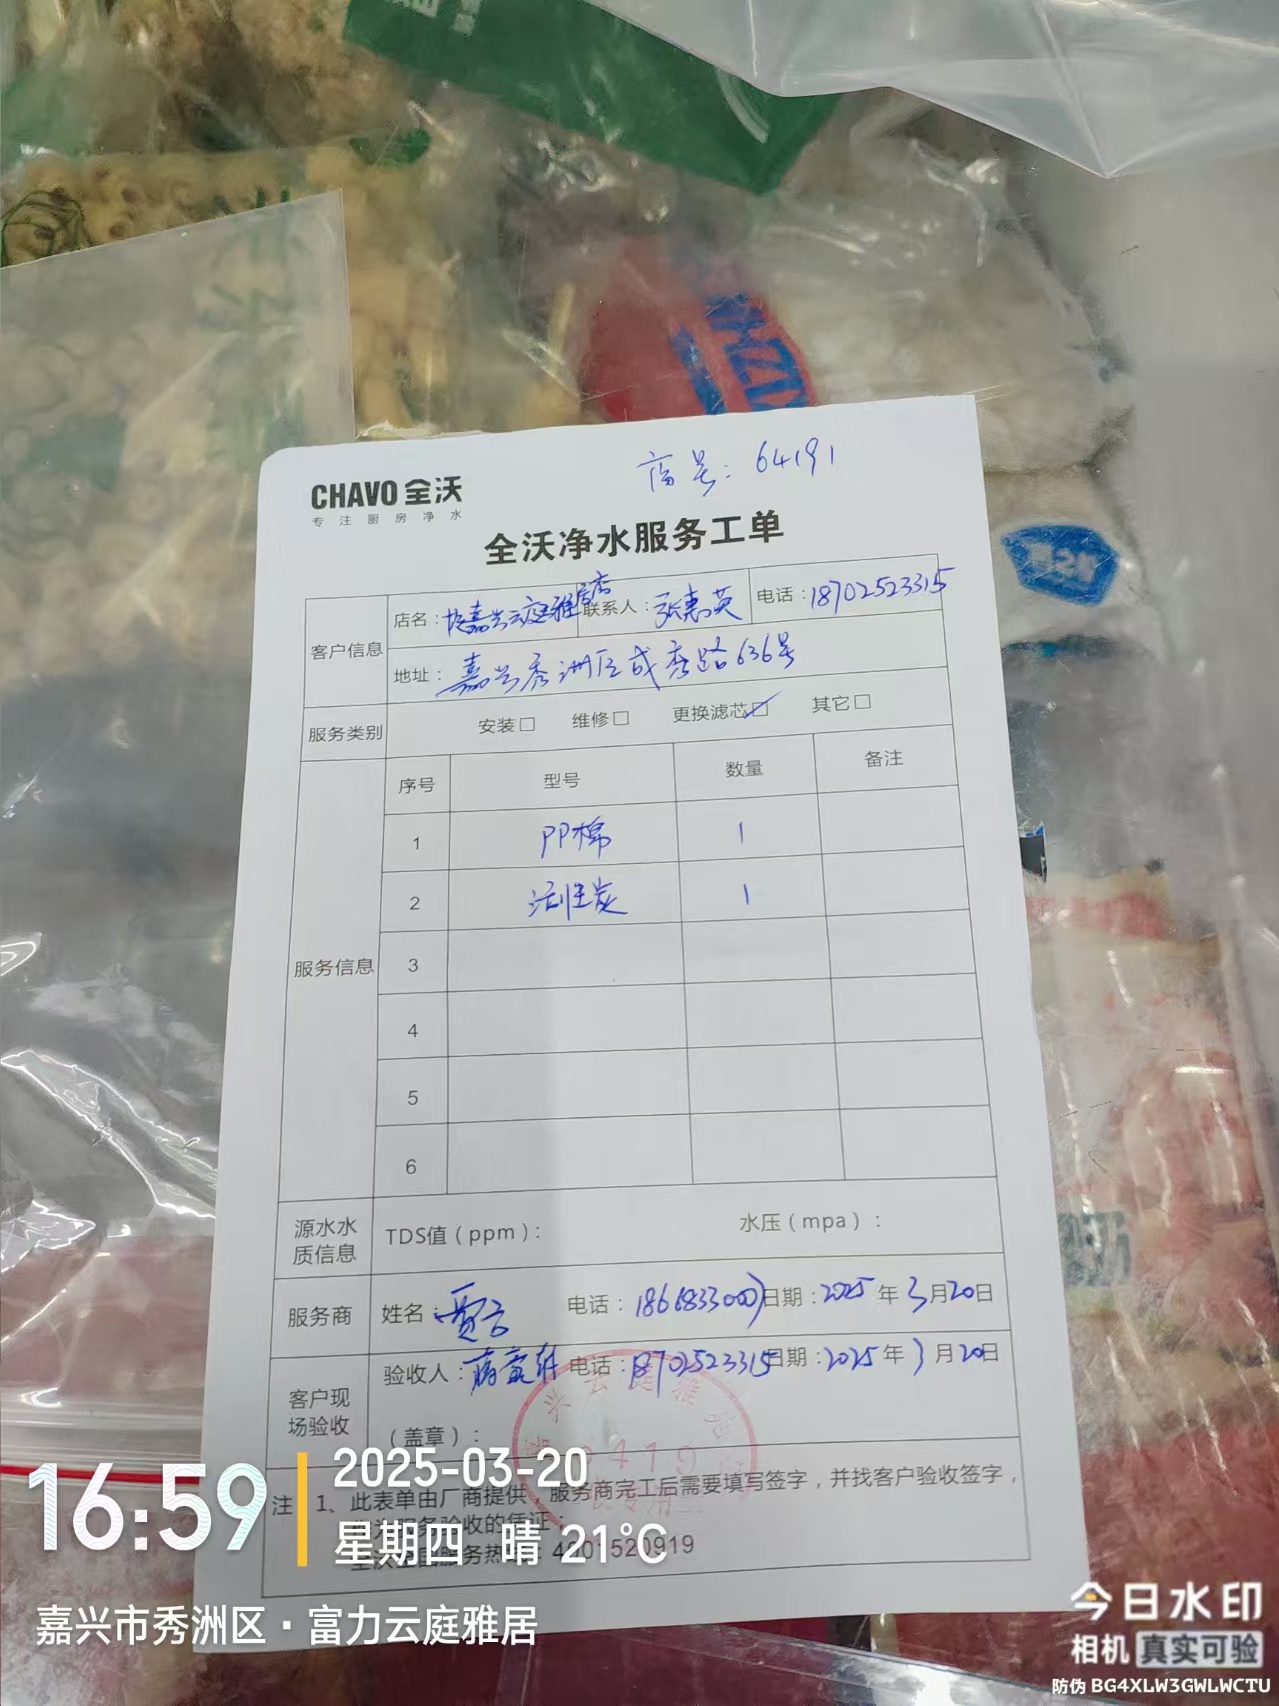 店号：64191
CHAVO 全沃
专注厨房净水
全沃净水服务工单
客户信息
店名：嘉兴云庭雅居店 联系人：张惠英 电话：18702523315
地址：嘉兴秀洲区成秀路636号
服务类别 安装□ 维修□ 更换滤芯☑ 其它□
服务信息
序号 型号 数量 备注
1 PP棉 1
2 活性炭 1
3
4
5
6
源水水质信息 TDS值（ppm）： 水压（mpa）：
服务商 姓名 电话： 日期：2025年3月20日
客户现场验收
验收人： 电话：18702523315 日期：2025年3月20日
（盖章）：
注 1、此表单由厂商提供，服务商完工后需要填写签字，并找客户验收签字，
服务验收的凭证；
服务热 4001520919
16:59
2025-03-20
星期四 晴 21℃
嘉兴市秀洲区·富力云庭雅居
今日水印
相机 真实可验
防伪 BG4XLW3GWLWCTU